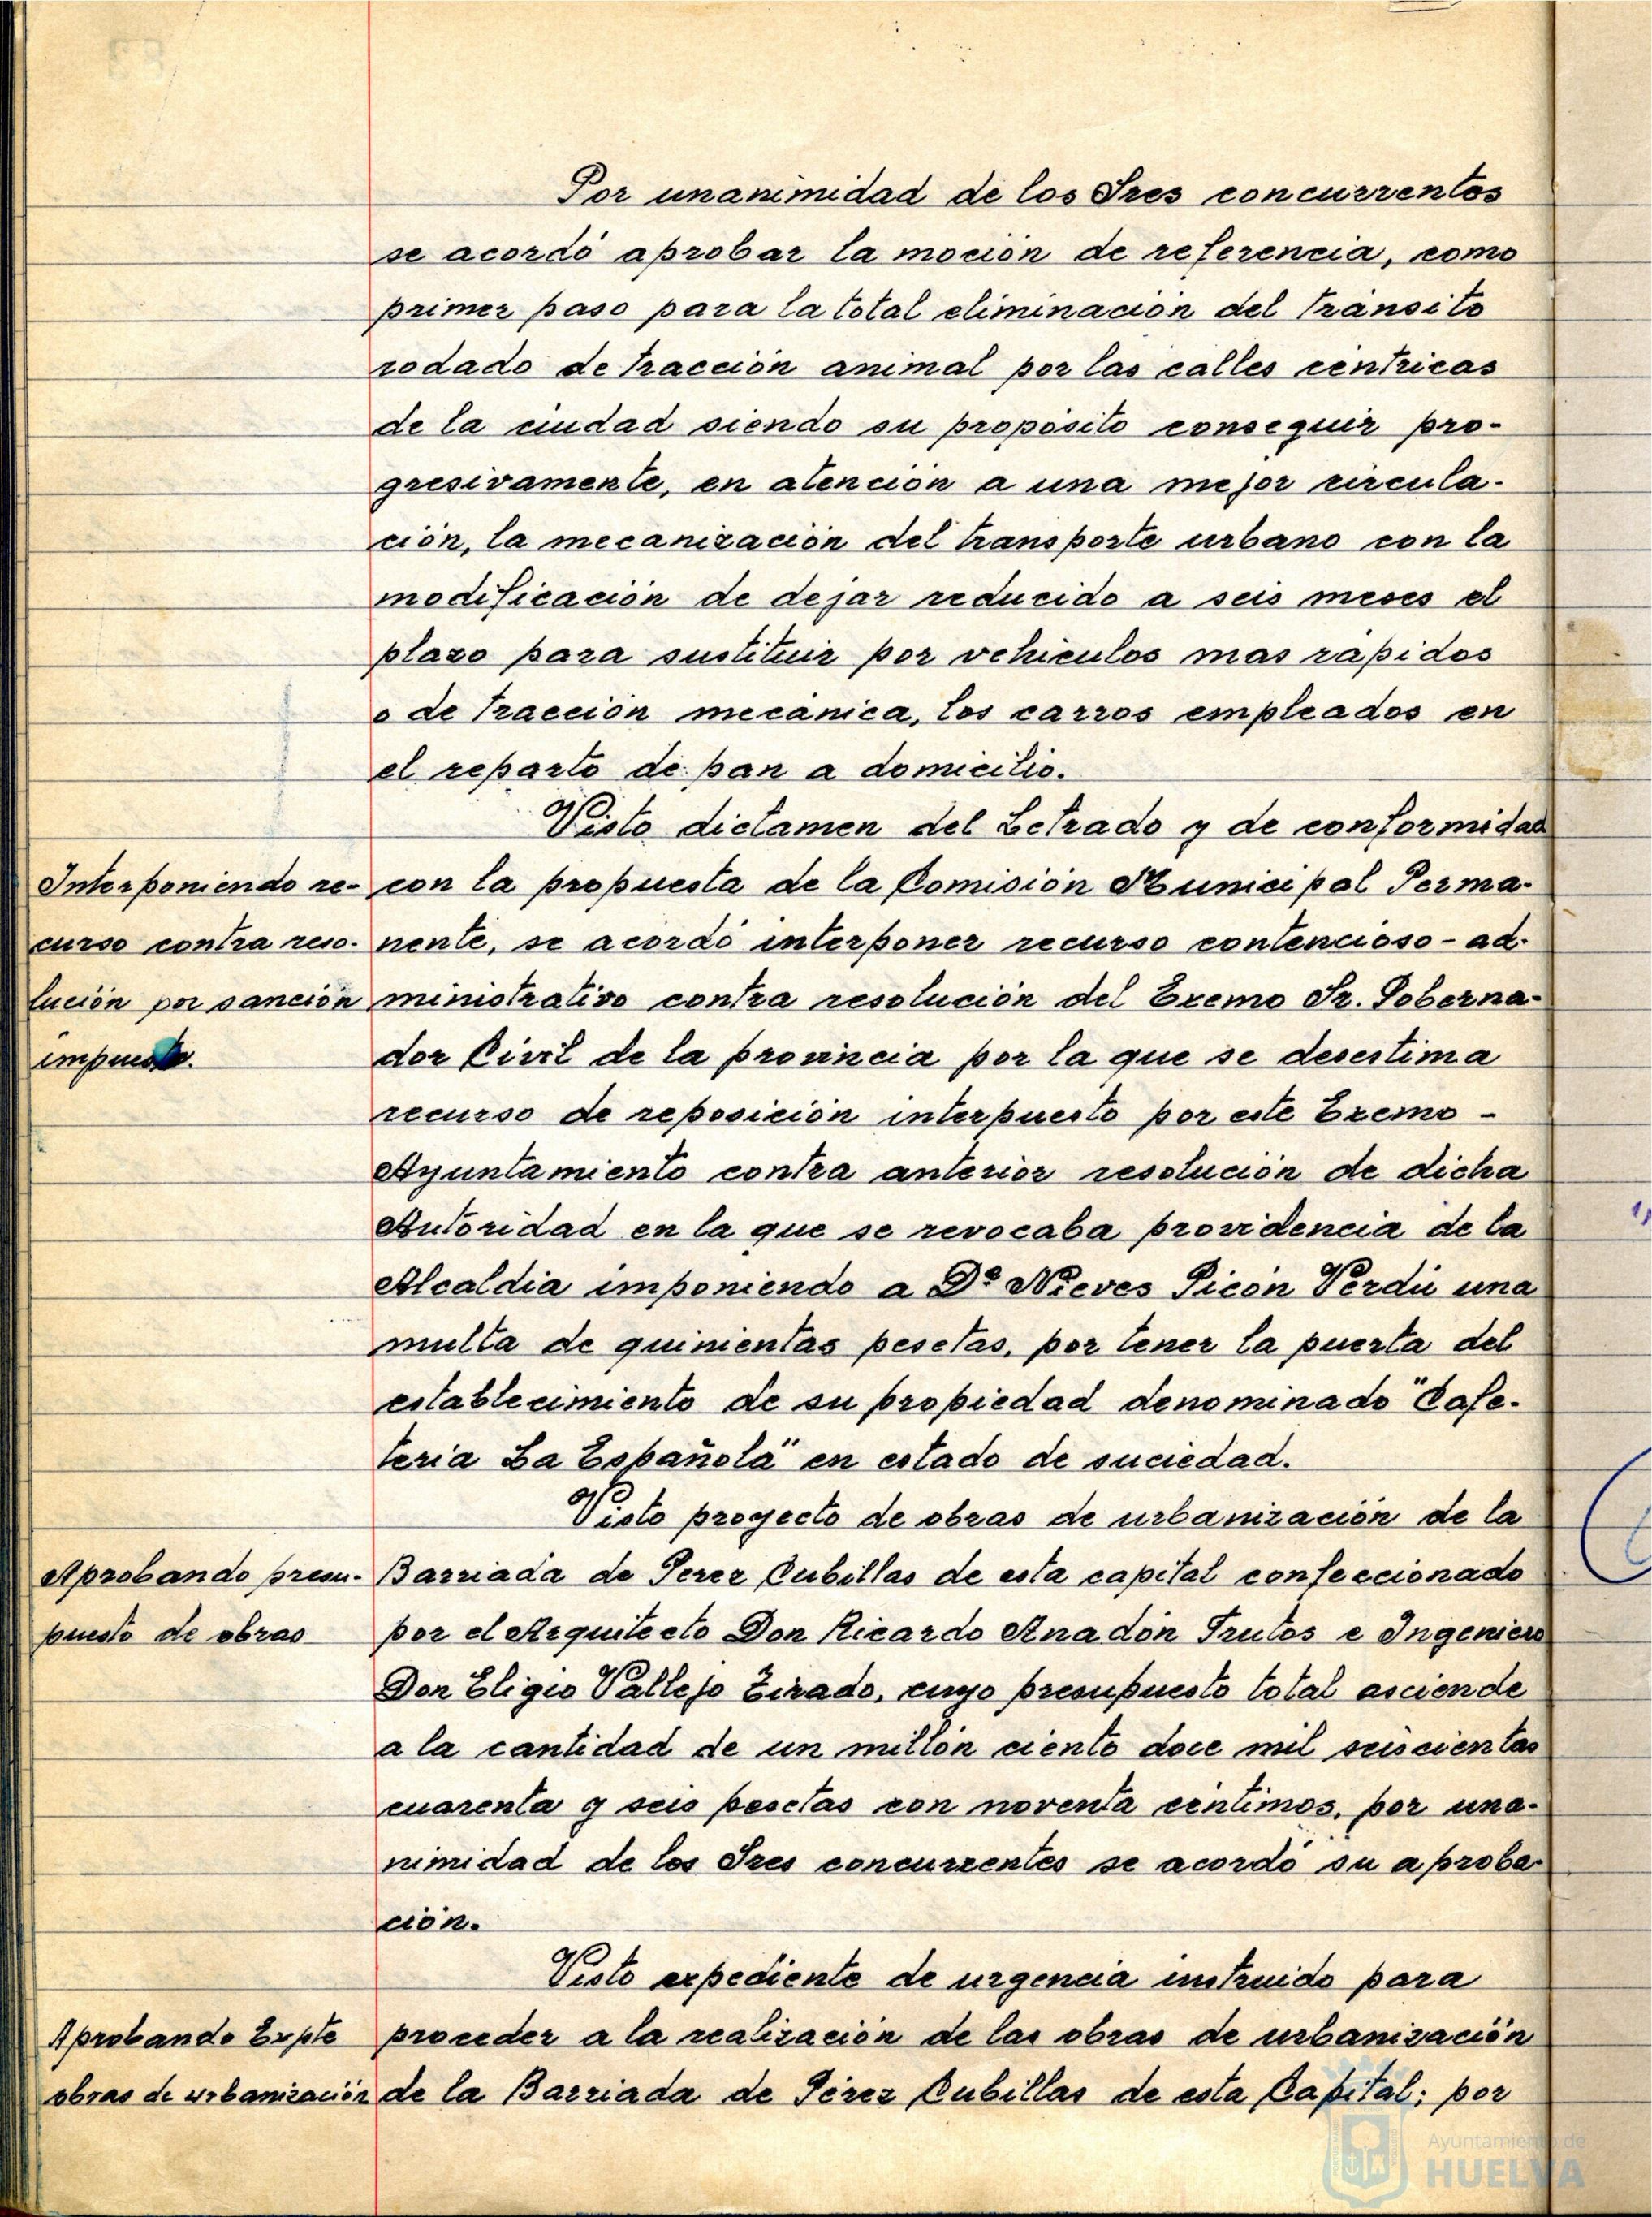 Por unanimidad de los Sres concurrentes
se acordó aprobar la moción de referencia, como
primer paso para la total eliminación del tránsito
rodado de tracción animal por las calles céntricas
de la ciudad siendo su propósito conseguir pro-
gresivamente, en atención a una mejor circula-
ción, la mecanización del transporte urbano con la
modificación de dejar reducido a seis meses el
plazo para sustituir por vehiculos mas rápidos
o de tracción mecánica, los carros empleados en
el reparto de pan a domicilio.
Visto dictamen del Letrado y de conformidad
Interponiendo re- con la propuesta de la Comisión Municipal Perma-
curso contra reso- nente, se acordó interponer recurso contencioso-ad-
lución por sanción ministrativo contra resolución del Excmo Sr. Goberna-
impuesta. dor Civil de la provincia por la que se desestima
recurso de reposición interpuesto por este Excmo -
Ayuntamiento contra anterior resolución de dicha
Autoridad en la que se revocaba providencia de la
Alcaldia imponiendo a Dª Nieves Picón Verdú una
multa de quinientas pesetas, por tener la puerta del
establecimiento de su propiedad denominado "Cafe-
teria La Española" en estado de suciedad.
Visto proyecto de obras de urbanización de la
Aprobando presu- Barriada de Perez Cubillas de esta capital confeccionado
puesto de obras por el Arquitecto Don Ricardo Anadón Frutos e Ingeniero
Don Eligio Vallejo Tirado, cuyo presupuesto total asciende
a la cantidad de un millón ciento doce mil seiscientas
cuarenta y seis pesetas con noventa céntimos, por una-
nimidad de los Sres concurrentes se acordó su aproba-
ción.
Visto expediente de urgencia instruido para
Aprobando Expte proceder a la realización de las obras de urbanización
obras de urbanización de la Barriada de Pérez Cubillas de esta Capital; por
Ayuntamiento de
HUELVA